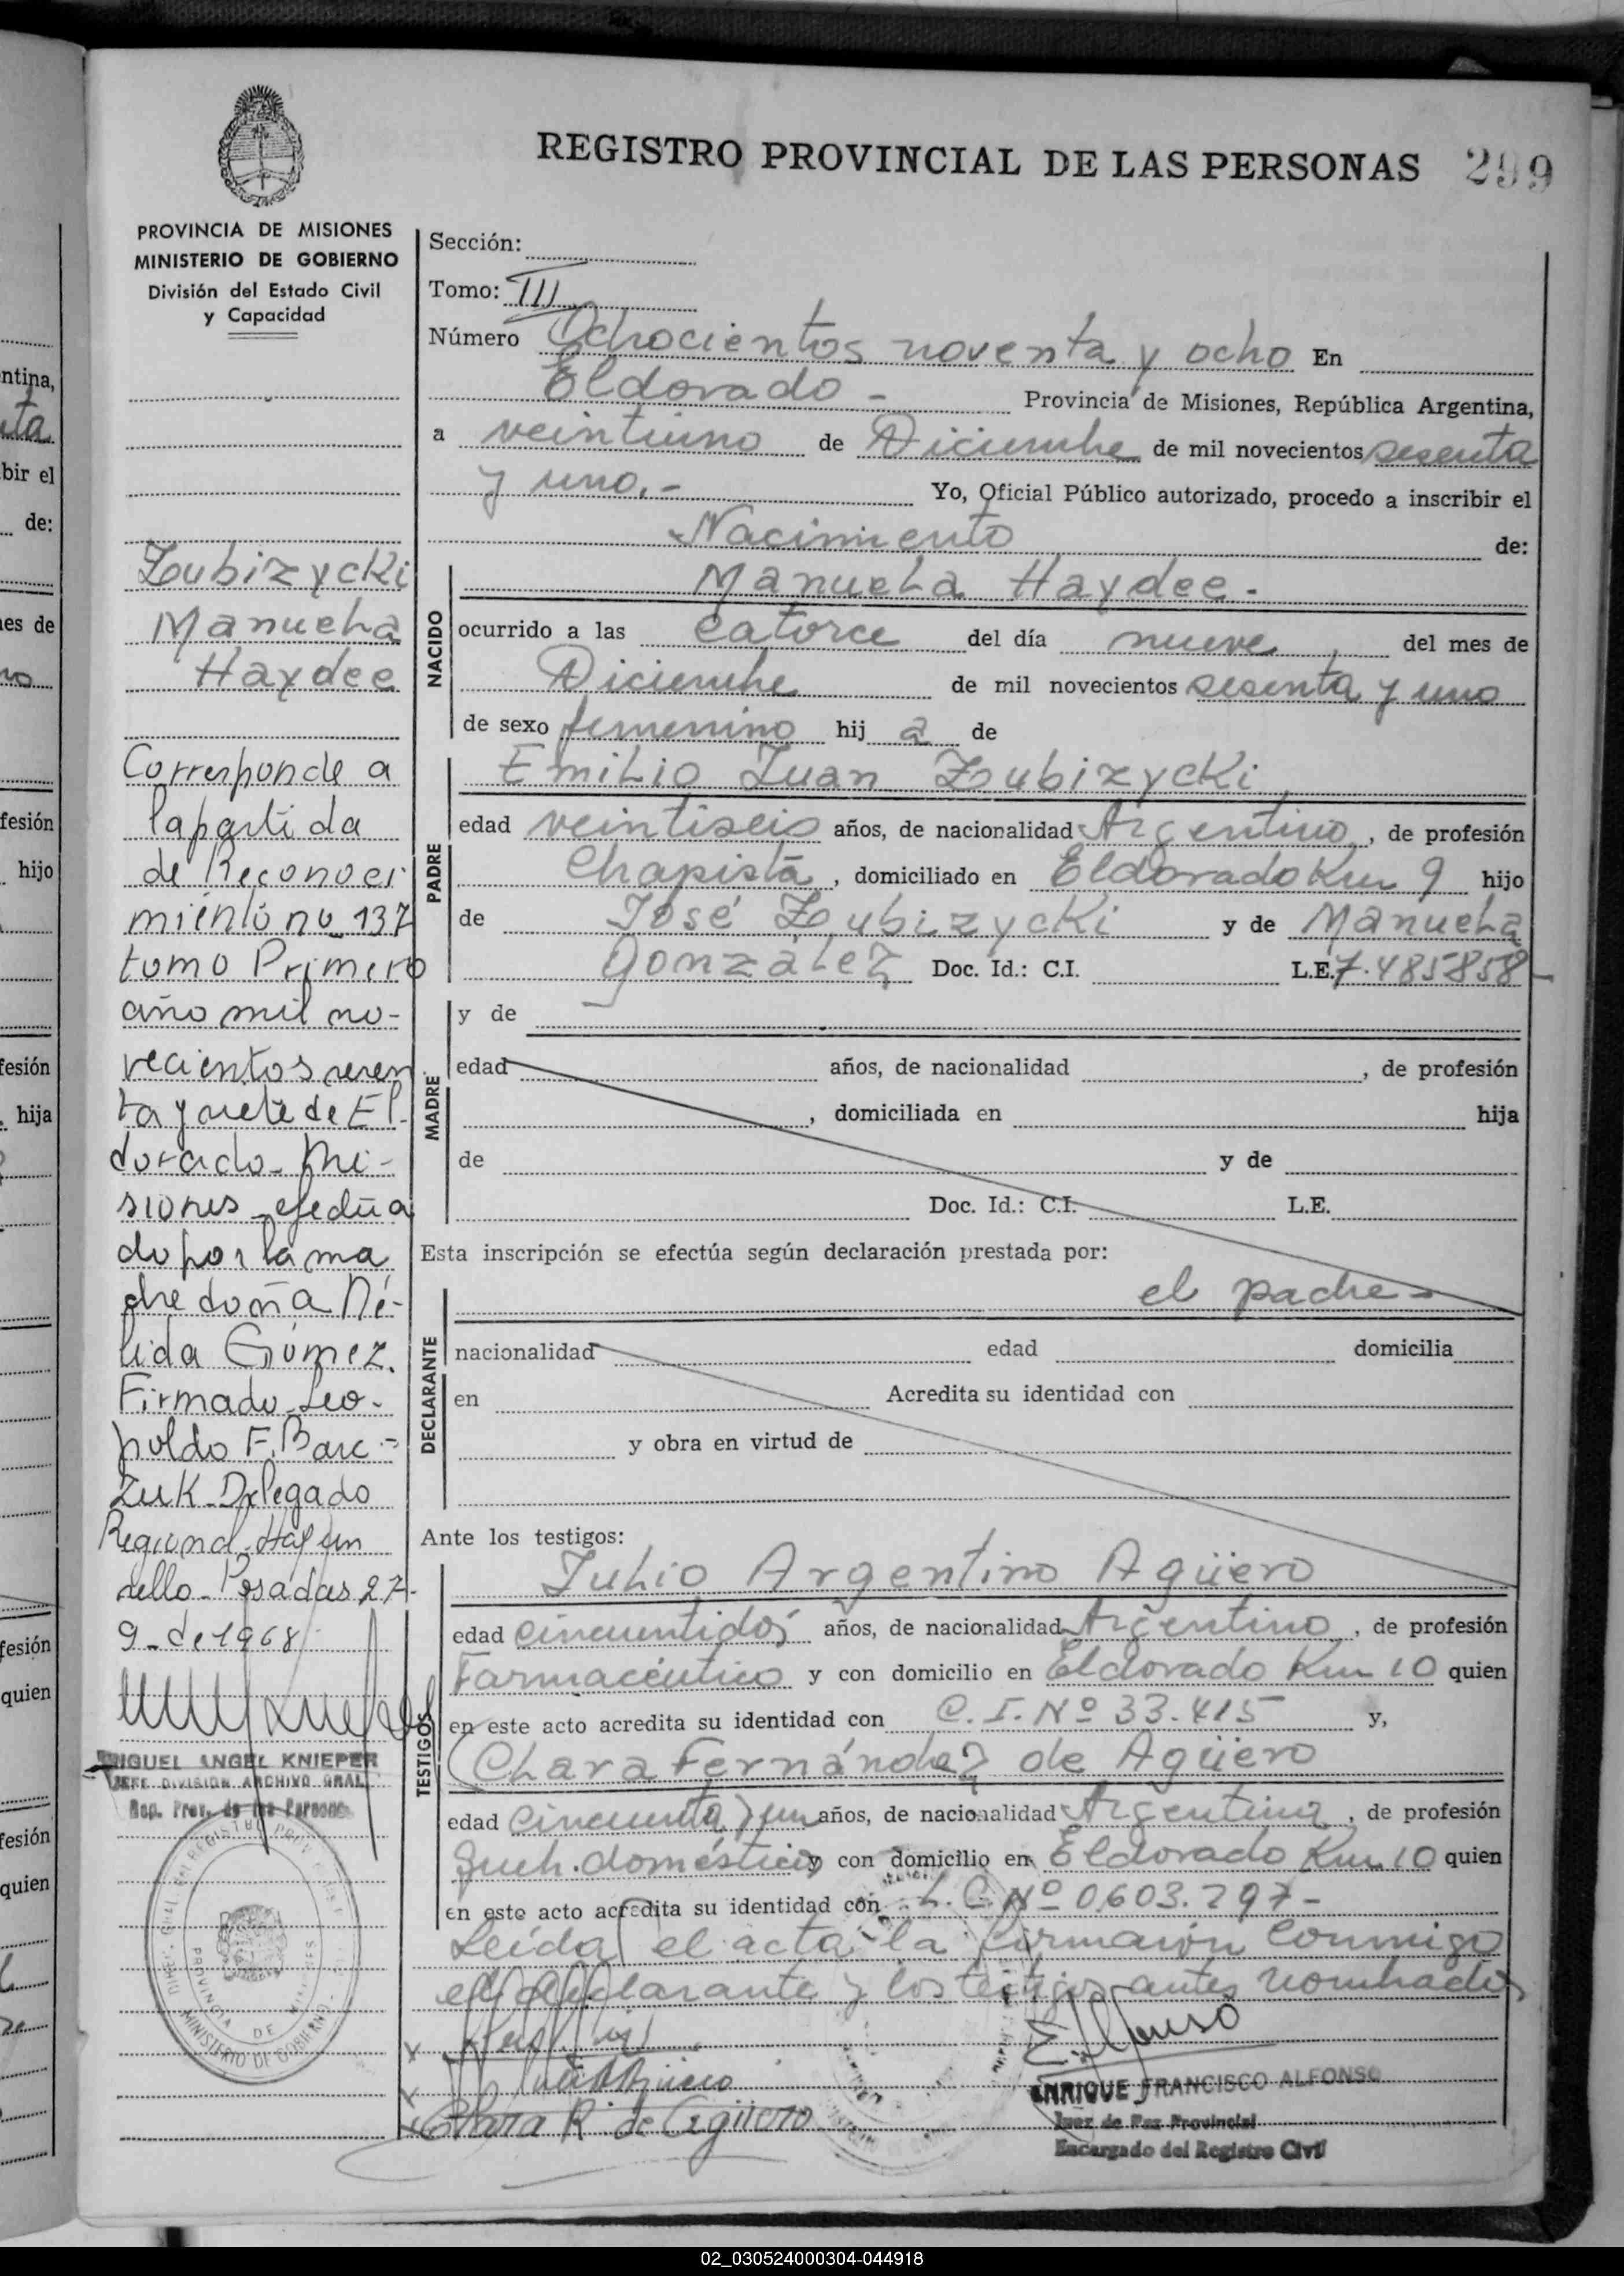 REGISTRO PROVINCIAL DE LAS PERSONAS 299
PROVINCIA DE MISIONES
MINISTERIO DE GOBIERNO
División del Estado Civil
y Capacidad
Zubizycki
Manuela
Haydee
Corresponde a
la partida
de Reconoci
miento no 137
tomo Primero
año mil no-
vecientos sesen
ta y siete de El-
dorado - Mi-
siones - efectua
do por la ma
dre doña Né-
lida Gómez.
Firmado Leo-
poldo F. Barc-
zuk - Delegado
Regional - Hay un
sello - Posadas 27-
9 - de 1968
MIGUEL ANGEL KNIEPER
JEFE DIVISION ARCHIVO GRAL
Rep. Prov. de las Personas
MINISTERIO DE GOBIERNO
PROVINCIA DE MISIONES
Sección:
Tomo: III
Número Ochocientos noventa y ocho En
Eldorado - Provincia de Misiones, República Argentina,
a veintiuno de Diciembre de mil novecientos sesenta
y uno.- Yo, Oficial Público autorizado, procedo a inscribir el
Nacimiento de:
NACIDO
Manuela Haydee.-
ocurrido a las catorce del día nueve del mes de
Diciembre de mil novecientos sesenta y uno
de sexo femenino hij a de
PADRE
Emilio Juan Zubizycki
edad veintiseis años, de nacionalidad Argentino, de profesión
Chapista, domiciliado en Eldorado Km 9 hijo
de José Zubizycki y de Manuela
González Doc. Id.: C.I. L.E. 7.485858-
MADRE
y de
edad años, de nacionalidad , de profesión
, domiciliada en hija
de y de
Doc. Id.: C.I. L.E.
Esta inscripción se efectúa según declaración prestada por:
el padre-
DECLARANTE
nacionalidad edad domicilia
en Acredita su identidad con
y obra en virtud de
Ante los testigos:
TESTIGOS
Julio Argentino Agüero
edad cincuentidós años, de nacionalidad Argentino, de profesión
Farmacéutico y con domicilio en Eldorado Km 10 quien
en este acto acredita su identidad con C.I. Nº 33.415 y,
Clara Fernández de Agüero
edad cincuenta y un años, de nacionalidad Argentina, de profesión
Queh. domésticos y con domicilio en Eldorado Km. 10 quien
en este acto acredita su identidad con L.C. Nº 0.603.297-
Leída el acta la firmaron conmigo
el declarante y los testigos antes nombrados
Clara R. de Agüero
ENRIQUE FRANCISCO ALFONSO
Juez de Paz Provincial
Encargado del Registro Civil
02_030524000304-044918